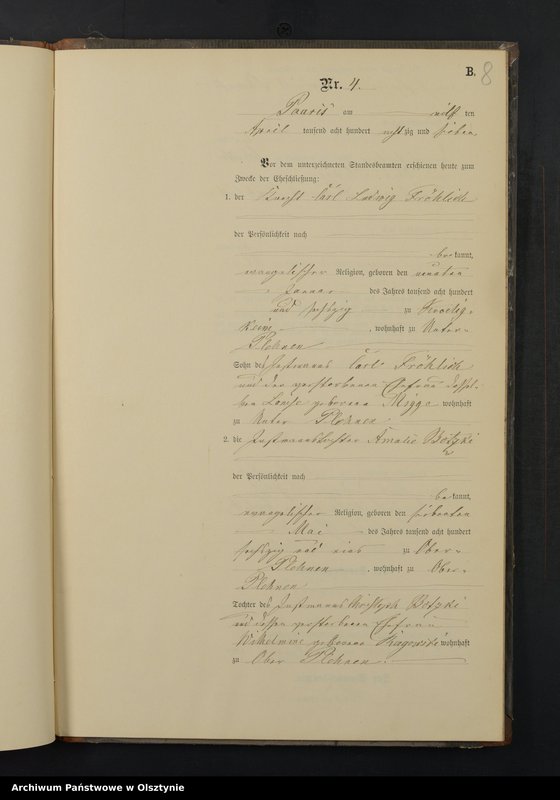 B.
8
Nr. 4.
Paaris am elf ten
April tausend acht hundert achtzig und sieben
Vor dem unterzeichneten Standesbeamten erschienen heute zum
Zwecke der Eheschließung:
1. der Knecht Carl Ludwig Fröhlich
der Persönlichkeit nach
bekannt,
evangelischer Religion, geboren den neunten
Januar des Jahres tausend acht hundert
und sechszig zu
Keim, wohnhaft zu Unter-
Plehnen
Sohn des Instmanns Carl Fröhlich
und der verstorbenen Ehefrau dessel-
ben Louise geborene Migge wohnhaft
zu Unter Plehnen
2. die Instmannstochter Amalie Botzki
der Persönlichkeit nach
bekannt,
evangelischer Religion, geboren den siebenten
Mai des Jahres tausend acht hundert
sechszig und eins zu Ober-
Plehnen, wohnhaft zu Ober-
Plehnen
Tochter des Instmanns Christoph Botzki
und dessen verstorbenen Ehefrau
Wilhelmine geborene wohnhaft
zu Ober Plehnen
Archiwum Państwowe w Olsztynie